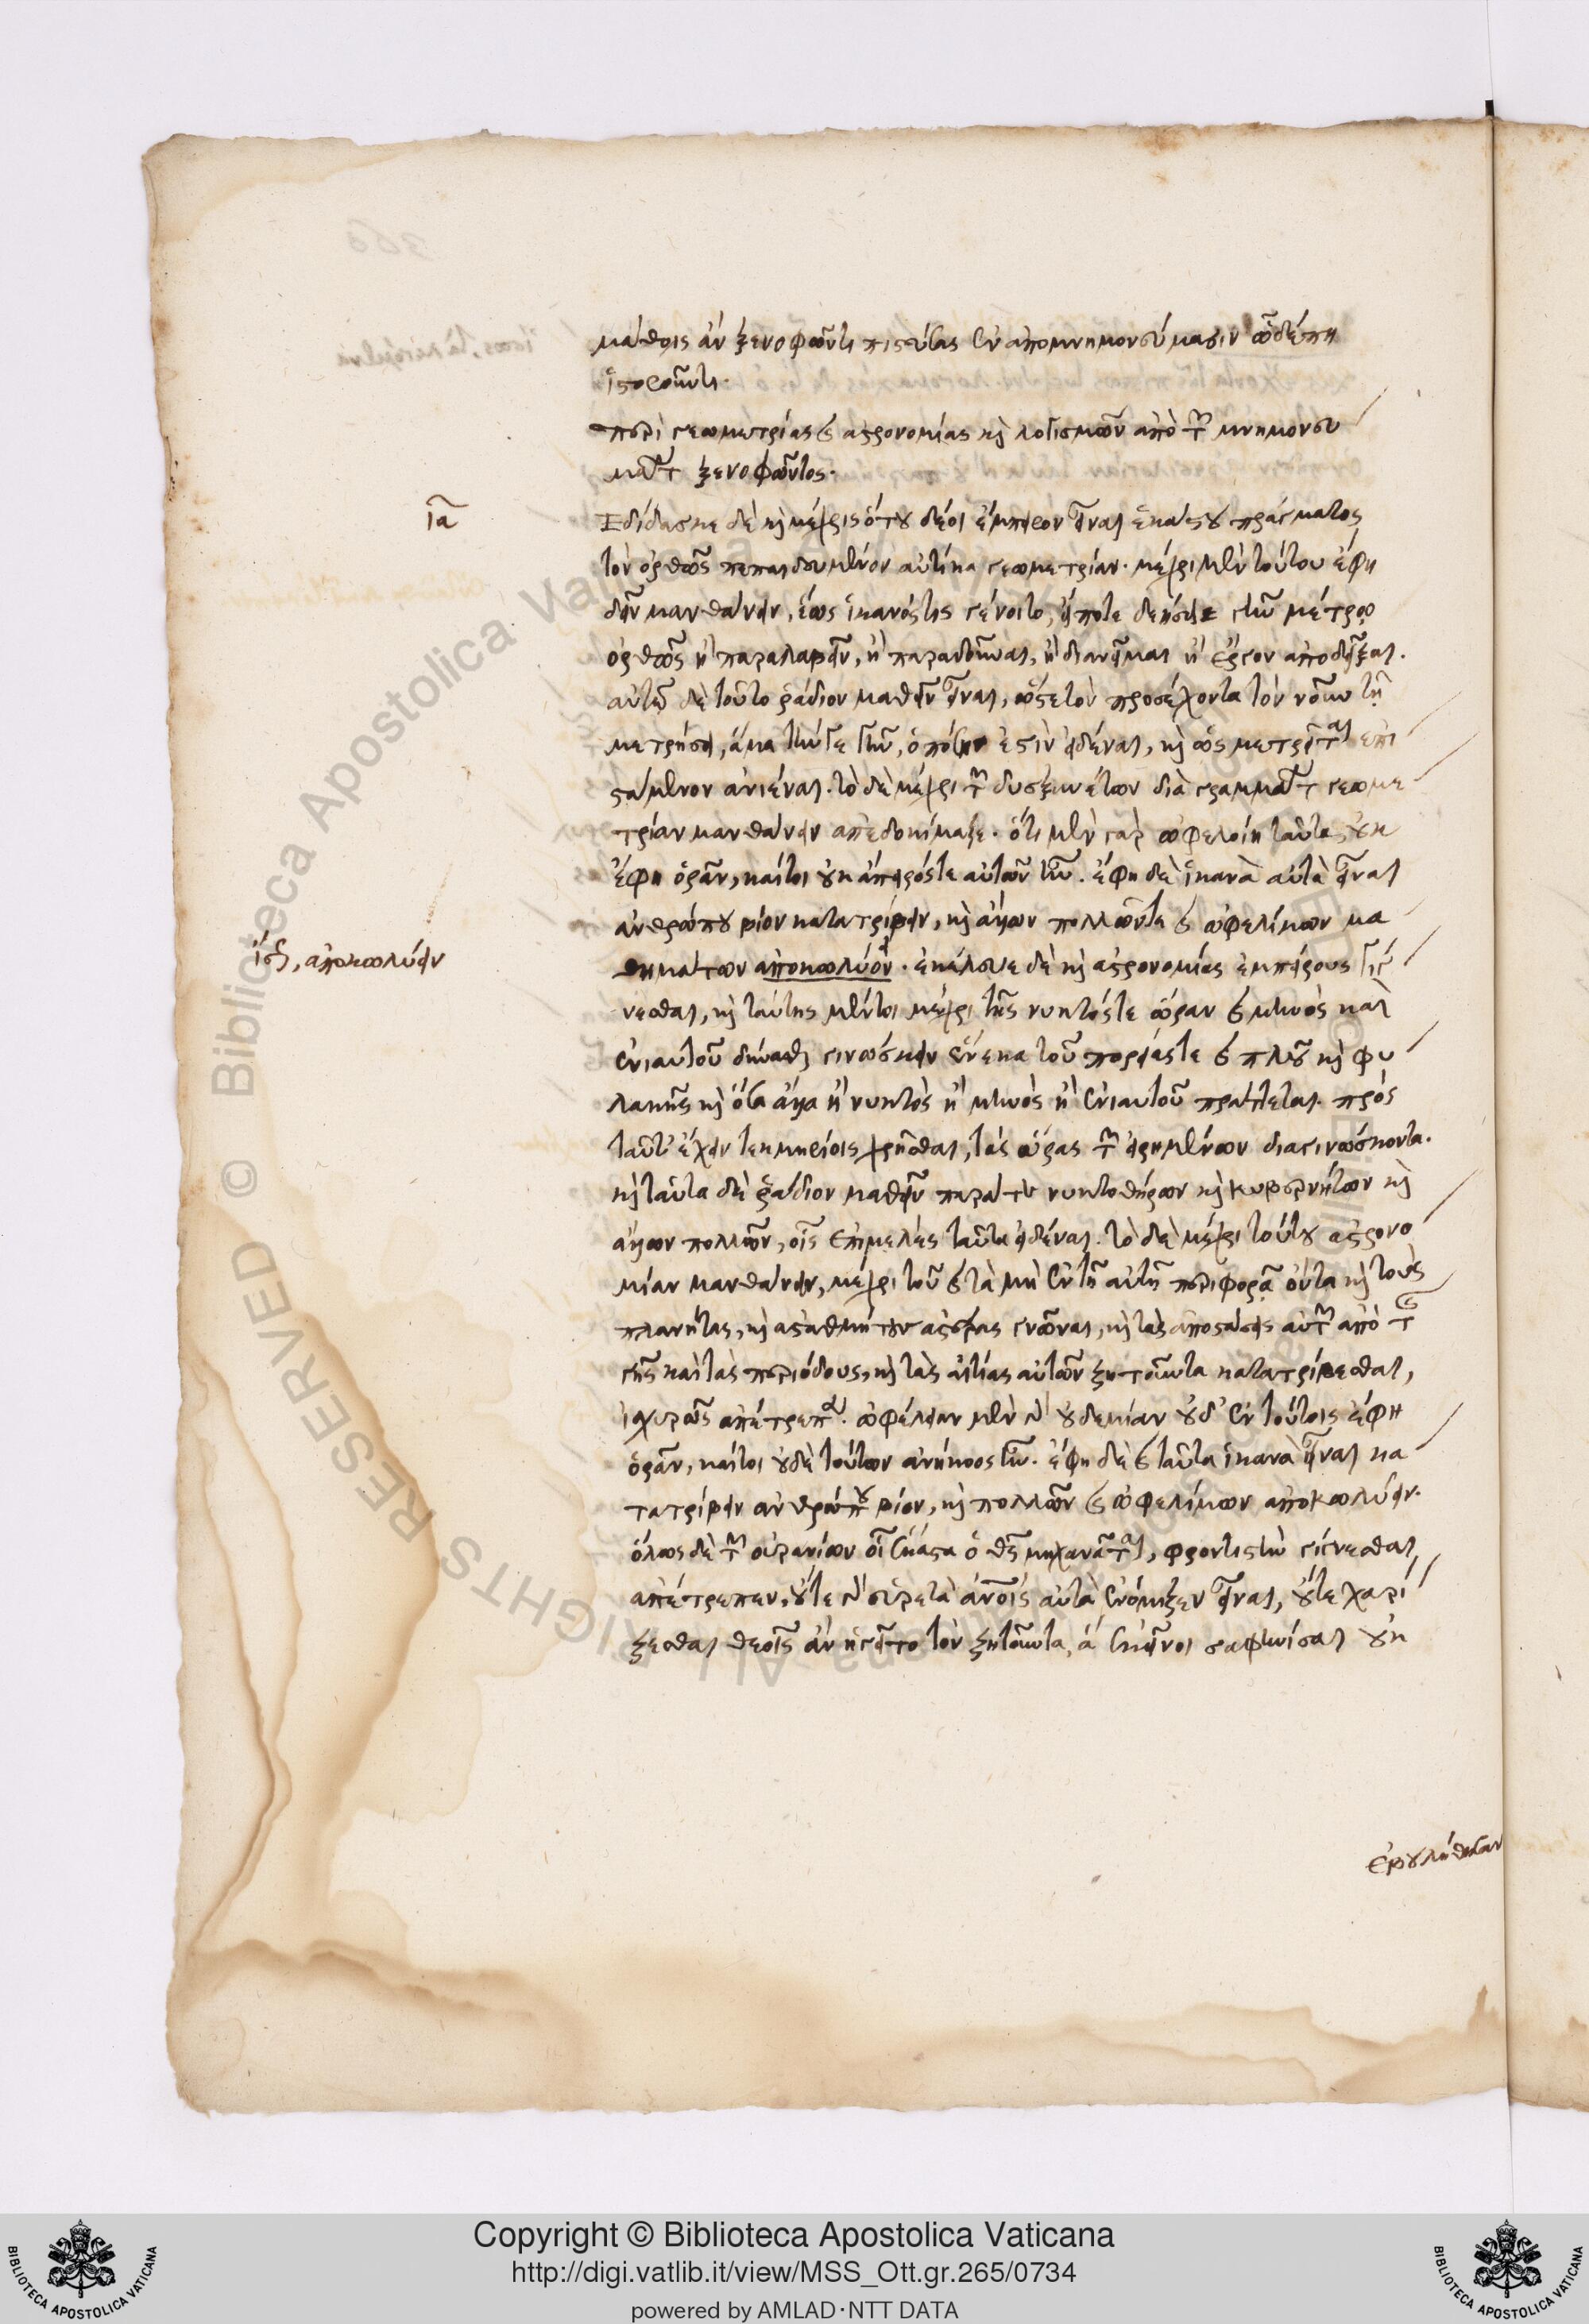 μάθοις ἂν ξενοφῶντι πιστεύσας ἐν ἀπομνημονεύμασιν ὧδέ πῃ
ἱστοροῦντι.
περὶ γεωμετρίας καὶ ἀστρονομίας καὶ λογισμῶν ἀπὸ τῶν μνημονευ
μάτων ξενοφῶντος.
ια
Ἐδίδασκε δὲ καὶ μέχρις ὅτου δέοι ἔμπειρον εἶναι ἑκάστου πράγματος
τὸν ὀρθῶς πεπαιδευμένον αὐτίκα γεωμετρίαν. μέχρι μὲν τούτου ἔφη
δεῖν μανθάνειν, ἕως ἱκανός τις γένοιτο, εἴποτε δεήσειε γῆν μέτρῳ
ὀρθῶς ἢ παραλαβεῖν, ἢ παραδοῦναι, ἢ διανεῖμαι ἢ ἔργον ἀποδεῖξαι.
αὐτῷ δὲ τοῦτο ῥάδιον μαθεῖν εἶναι, ὥστε τὸν προσέχοντα τὸν νοῦν τῇ
μετρήσει, ἅμα τήν τε γῆν, ὁπόση ἐστὶν εἰδέναι, καὶ ὡς μετρεῖται ἐπι
στάμενον ἀνιέναι. τὸ δὲ μέχρι τῶν δυσξυνέτων διὰ γραμμάτων γεωμε
τρίαν μανθάνειν ἀπεδοκίμαζε. ὅτι μὲν γὰρ ὠφελοίη ταῦτα, οὐκ
ἔφη ὁρᾶν, καίτοι οὐκ ἄπειρός τε αὐτῶν ἦν. ἔφη δὲ ἱκανὰ αὐτὰ εἶναι
ἀνθρώπου βίον κατατρίβειν, καὶ ἄλλων πολλῶν τε καὶ ὠφελίμων μα
θημάτων ἀποκωλύον. ἐκέλευε δὲ καὶ ἀστρονομίας ἐμπείρους γίγ
ἴσ, ἀποκωλύειν
νεσθαι, καὶ ταύτης μέντοι μέχρι τῆς νυκτός τε ὥραν καὶ μηνὸς καὶ
ἐνιαυτοῦ δύνασθαι γινώσκειν ἕνεκα τοῦ πορείας τε καὶ πλοῦ καὶ φυ
λακῆς καὶ ὅσα ἄλλα ἢ νυκτὸς ἢ μηνὸς ἢ ἐνιαυτοῦ πράττεται. πρὸς
ταῦτ' ἔχειν τεκμηρίοις χρῆσθαι, τὰς ὥρας τῶν εἰρημένων διαγινώσκοντα.
καὶ ταῦτα δὲ ῥάδιον μαθεῖν παρά τε νυκτοθήρων καὶ κυβερνήτων καὶ
ἄλλων πολλῶν, οἷς ἐπιμελὲς ταῦτα εἰδέναι. τὸ δὲ μέχρι τούτου ἀστρονο
μίαν μανθάνειν, μέχρι τοῦ καὶ τὰ μὴ ἐν τῇ αὐτῇ περιφορᾷ ὄντα καὶ τοὺς
πλανήτας, καὶ ἀσταθμήτους ἀστέρας γνῶναι, καὶ τὰς ἀποστάσεις αὐτῶν ἀπὸ τῆς
γῆς καὶ τὰς περιόδους, καὶ τὰς αἰτίας αὐτῶν ζητοῦντα κατατρίβεσθαι,
ἰσχυρῶς ἀπέτρεπεν. ὠφέλειαν μὲν γὰρ οὐδεμίαν οὐδ' ἐν τούτοις ἔφη
ὁρᾶν, καίτοι οὐδὲ τούτων ἀνήκοος ἦν. ἔφη δὲ καὶ ταῦτα ἱκανὰ εἶναι κα
τατρίβειν ἀνθρώπου βίον, καὶ πολλῶν καὶ ὠφελίμων ἀποκωλύειν.
ὅλως δὲ τῶν οὐρανίων οἷ ἕκαστα ὁ θεὸς μηχανᾶται, φροντιστὴν γίγνεσθαι
ἀπέτρεπεν, οὔτε γὰρ εὑρετὰ ἀνοις αὐτὰ ἐνόμιζεν εἶναι, οὔτε χαρί
ζεσθαι θεοῖς ἂν ἡγεῖτο τὸν ζητοῦντα, ἃ ἐκεῖνοι σαφηνίσαι οὐκ
ἐβουλήθησαν
Copyright © Biblioteca Apostolica Vaticana
http://digi.vatlib.it/view/MSS_Ott.gr.265/0734
powered by AMLAD·NTT DATA
BIBLIOTECA APOSTOLICA VATICANA
BIBLIOTECA APOSTOLICA VATICANA
Biblioteca Apostolica Vaticana ALL RIGHTS RESERVED ©